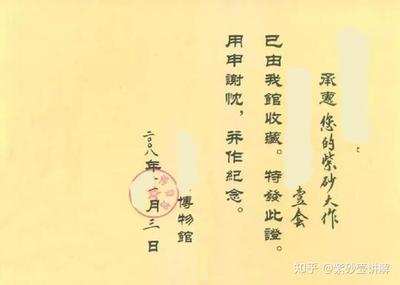 承惠您的紫砂大作
壹套
已由我館收藏。特發此證。
用申謝忱，并作紀念。
博物館
二〇〇八年 月三日
知乎 @紫砂壶讲解